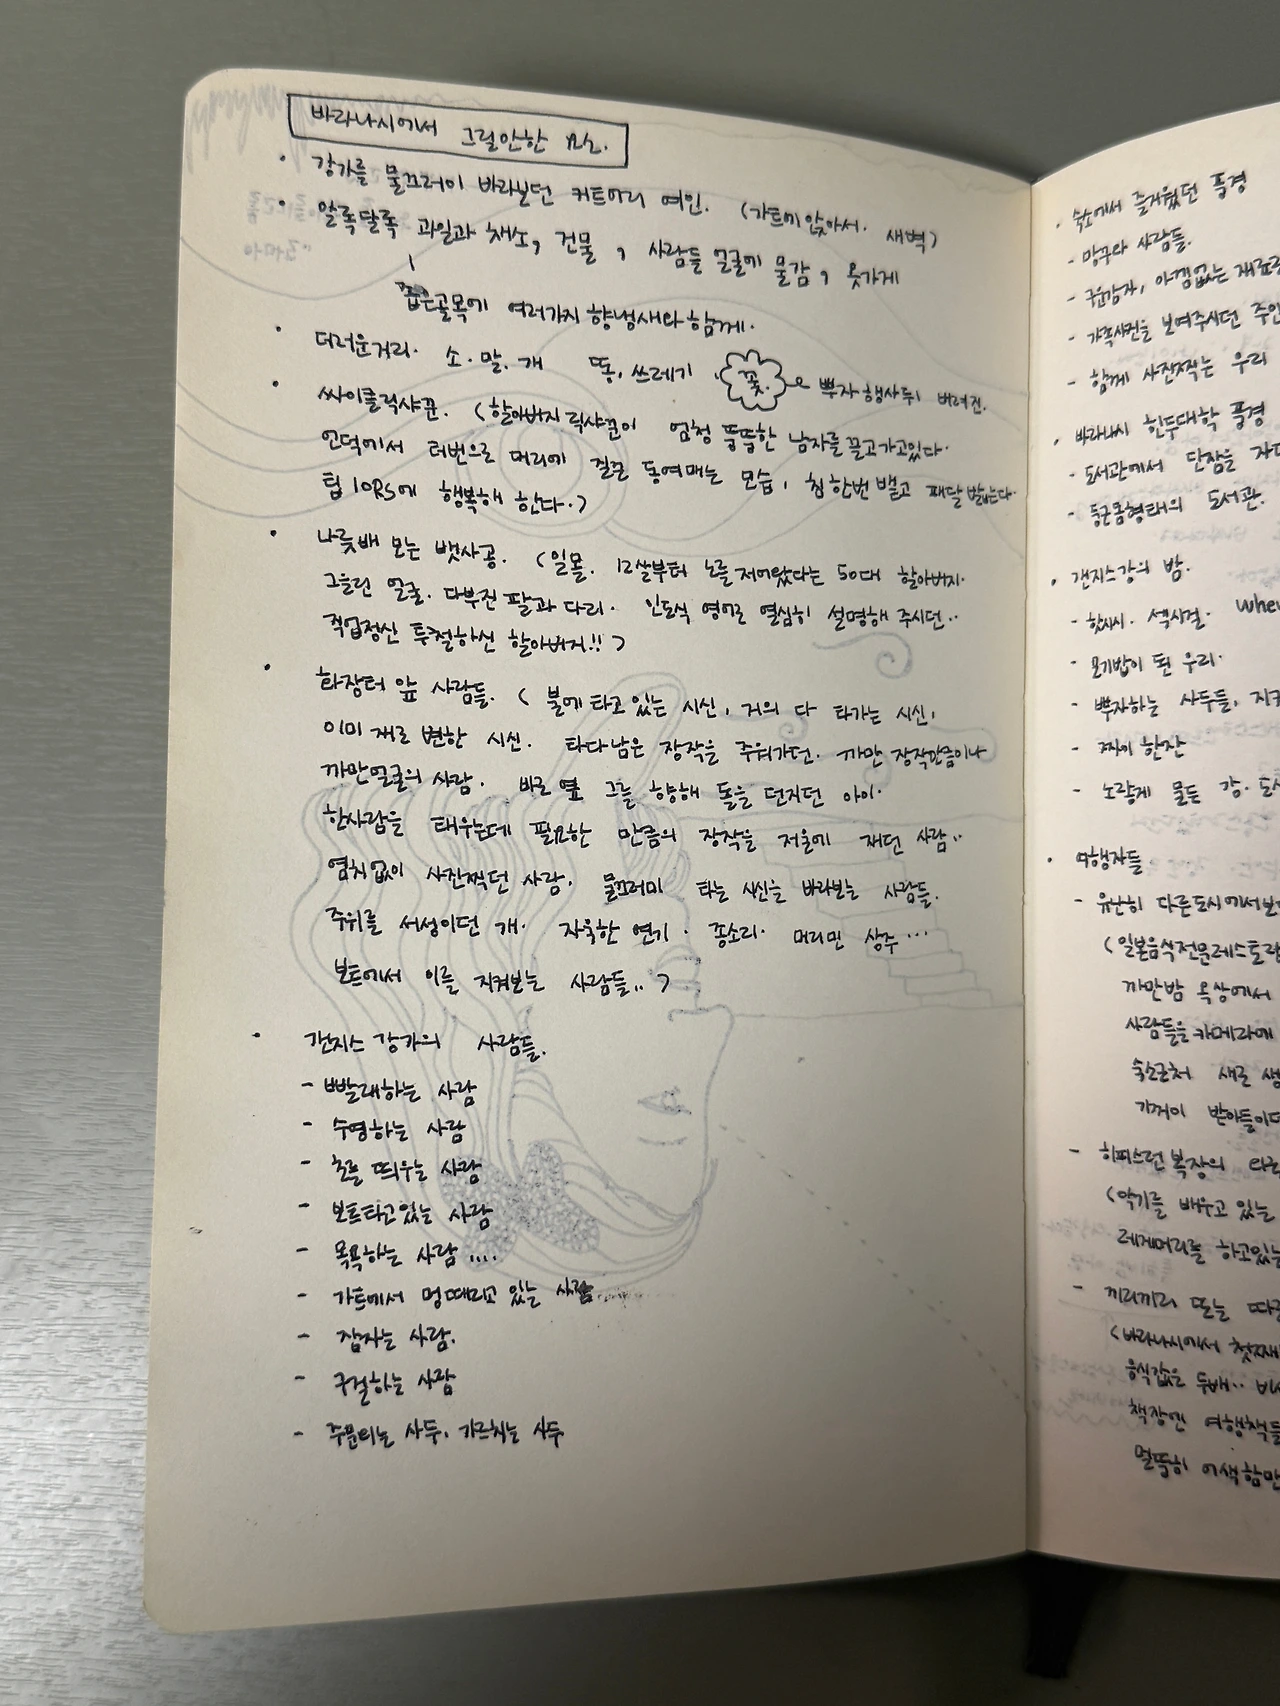 바라나시에서 그릴만한 요소.
· 강가를 물끄러미 바라보던 커트머리 여인. (가트에 앉아서. 새벽)
· 알록달록 과일과 채소, 건물, 사람들 얼굴에 물감, 옷가게
좁은골목에 여러가지 향냄새와 함께.
· 더러운거리. 소.말.개 똥, 쓰레기, 꽃. 뿌자 행사 뒤 버려진.
· 싸이클릭샤꾼. (할아버지 릭샤꾼이 엄청 뚱뚱한 남자를 끌고가고있다.
언덕에서 터번으로 머리에 질끈 동여매는 모습, 침 한번 뱉고 패달 밟는다.
팁 10Rs에 행복해 한다.)
· 나룻배 모는 뱃사공. (일몰. 12살부터 노를 저어왔다는 50대 할아버지.
그을린 얼굴. 다부진 팔과 다리. 인도식 영어로 열심히 설명해 주시던..
직업정신 투철하신 할아버지!!)
· 화장터 앞 사람들. (불에 타고 있는 시신, 거의 다 타가는 시신,
이미 재로 변한 시신. 타다 남은 장작을 주워가던. 까만 장작만큼이나
까만얼굴의 사람. 바로 옆 그를 향해 돌을 던지던 아이.
한사람을 태우는데 필요한 만큼의 장작을 저울에 재던 사람..
염치없이 사진찍던 사람. 물끄러미 타는 시신을 바라보는 사람들.
주위를 서성이던 개. 자욱한 연기. 종소리. 머리민 상주...
보트에서 이를 지켜보는 사람들..)
· 갠지스 강가의 사람들.
- 빨래하는 사람
- 수영하는 사람
- 초를 띄우는 사람
- 보트타고있는 사람
- 목욕하는 사람....
- 가트에서 멍때리고 있는 사람
- 잠자는 사람.
- 구걸하는 사람
- 주문외는 사두, 가르치는 사두
· 숙소에서 즐거웠던 풍경
- 망구와 사람들.
- 구운감자, 아낌없는
- 가족사진을 보여주시던
- 함께 사진찍는 우리
· 바라나시 힌두대학 풍경
- 도서관에서 단잠을
- 둥근돔형태의 도서관.
· 갠지스강의 밤.
- 핫시시. 섹시걸.
- 모기밥이 된 우리.
- 뿌자하는 사두들,
- 짜이 한잔
- 노랗게 물든 강.
· 여행자들
- 유난히 다른도시에서보
(일본음식전문레스토랑
까만밤 옥상에서
사람들을 카메라에
숙소근처 새로
기꺼이 받아들이
- 히피스런 복장의
(악기를 배우고 있는
레게머리를 하고있는
- 끼리끼리 또는
(바라나시에서 첫째
음식값은 두배..
책장엔 여행책들
멀뚱히 어색함만